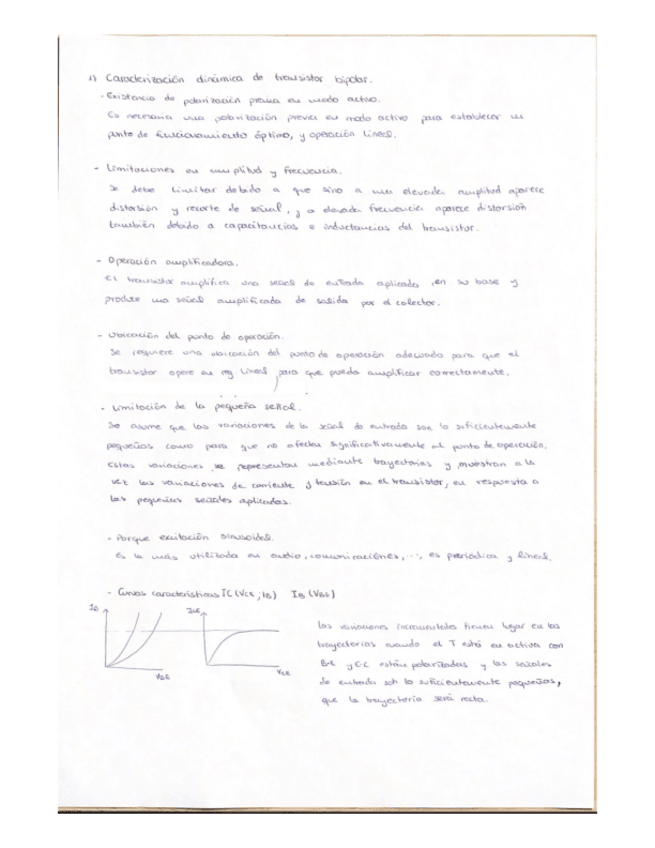 1) Caracterización dinámica de transistor bipolar.
- Existencia de polarización previa en modo activo.
Es necesaria una polarización previa en modo activo para establecer un
punto de funcionamiento óptimo, y operación lineal.
- Limitaciones en amplitud y frecuencia.
Se debe limitar debido a que sino a una elevada amplitud aparece
distorsión y recorte de señal, y a elevada frecuencia aparece distorsión
también debido a capacitancias e inductancias del transistor.
- Operación amplificadora.
El transistor amplifica una señal de entrada aplicada en su base y
produce una señal amplificada de salida por el colector.
- Ubicación del punto de operación.
Se requiere una ubicación del punto de operación adecuado para que el
transistor opere en reg lineal, para que pueda amplificar correctamente.
- Limitación de la pequeña señal.
Se asume que las variaciones de la señal de entrada son lo suficientemente
pequeñas como para que no afecten significativamente al punto de operación.
Estas variaciones se representan mediante trayectorias y muestran a la
vez las variaciones de corriente y tensión en el transistor, en respuesta a
las pequeñas señales aplicadas.
- Porque excitación sinusoidal.
Es la más utilizada en audio, comunicaciones, ..., es periódica y lineal.
- Curvas características IC (VCE, IB) IB (VBE)
IB
VBE
VCE
las variaciones incrementales tienen lugar en las
trayectorias cuando el T está en activa con
B-E y C-C están polarizadas y las señales
de entrada son lo suficientemente pequeñas,
que la trayectoria será recta.